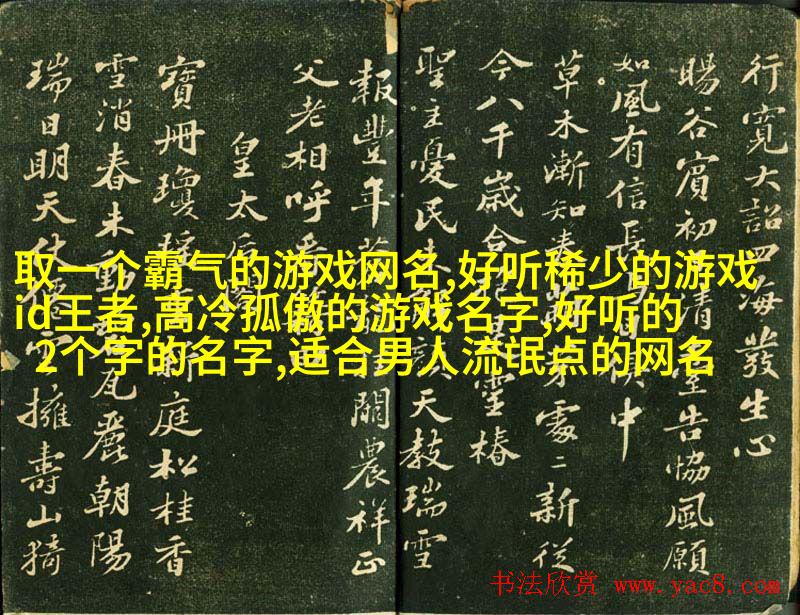 行寬大詔四海發生心
暘谷賓初清臺告協風願
如風有信長日中
草木漸知春芽處〻新從
今八千歲合是靈椿
聖主憂民天教瑞雪
報豐年關農祥正
父老相呼看
皇太后
寶冊瓊瑤新庭松桂香
雪消春未動瓦麗朝陽
瑞日明天仗僊擁壽山猗
取一个霸气的游戏网名,好听稀少的游戏
id王者,高冷孤傲的游戏名字,好听的
2个字的名字,适合男人流氓点的网名
书法欣赏 www.yac8.com